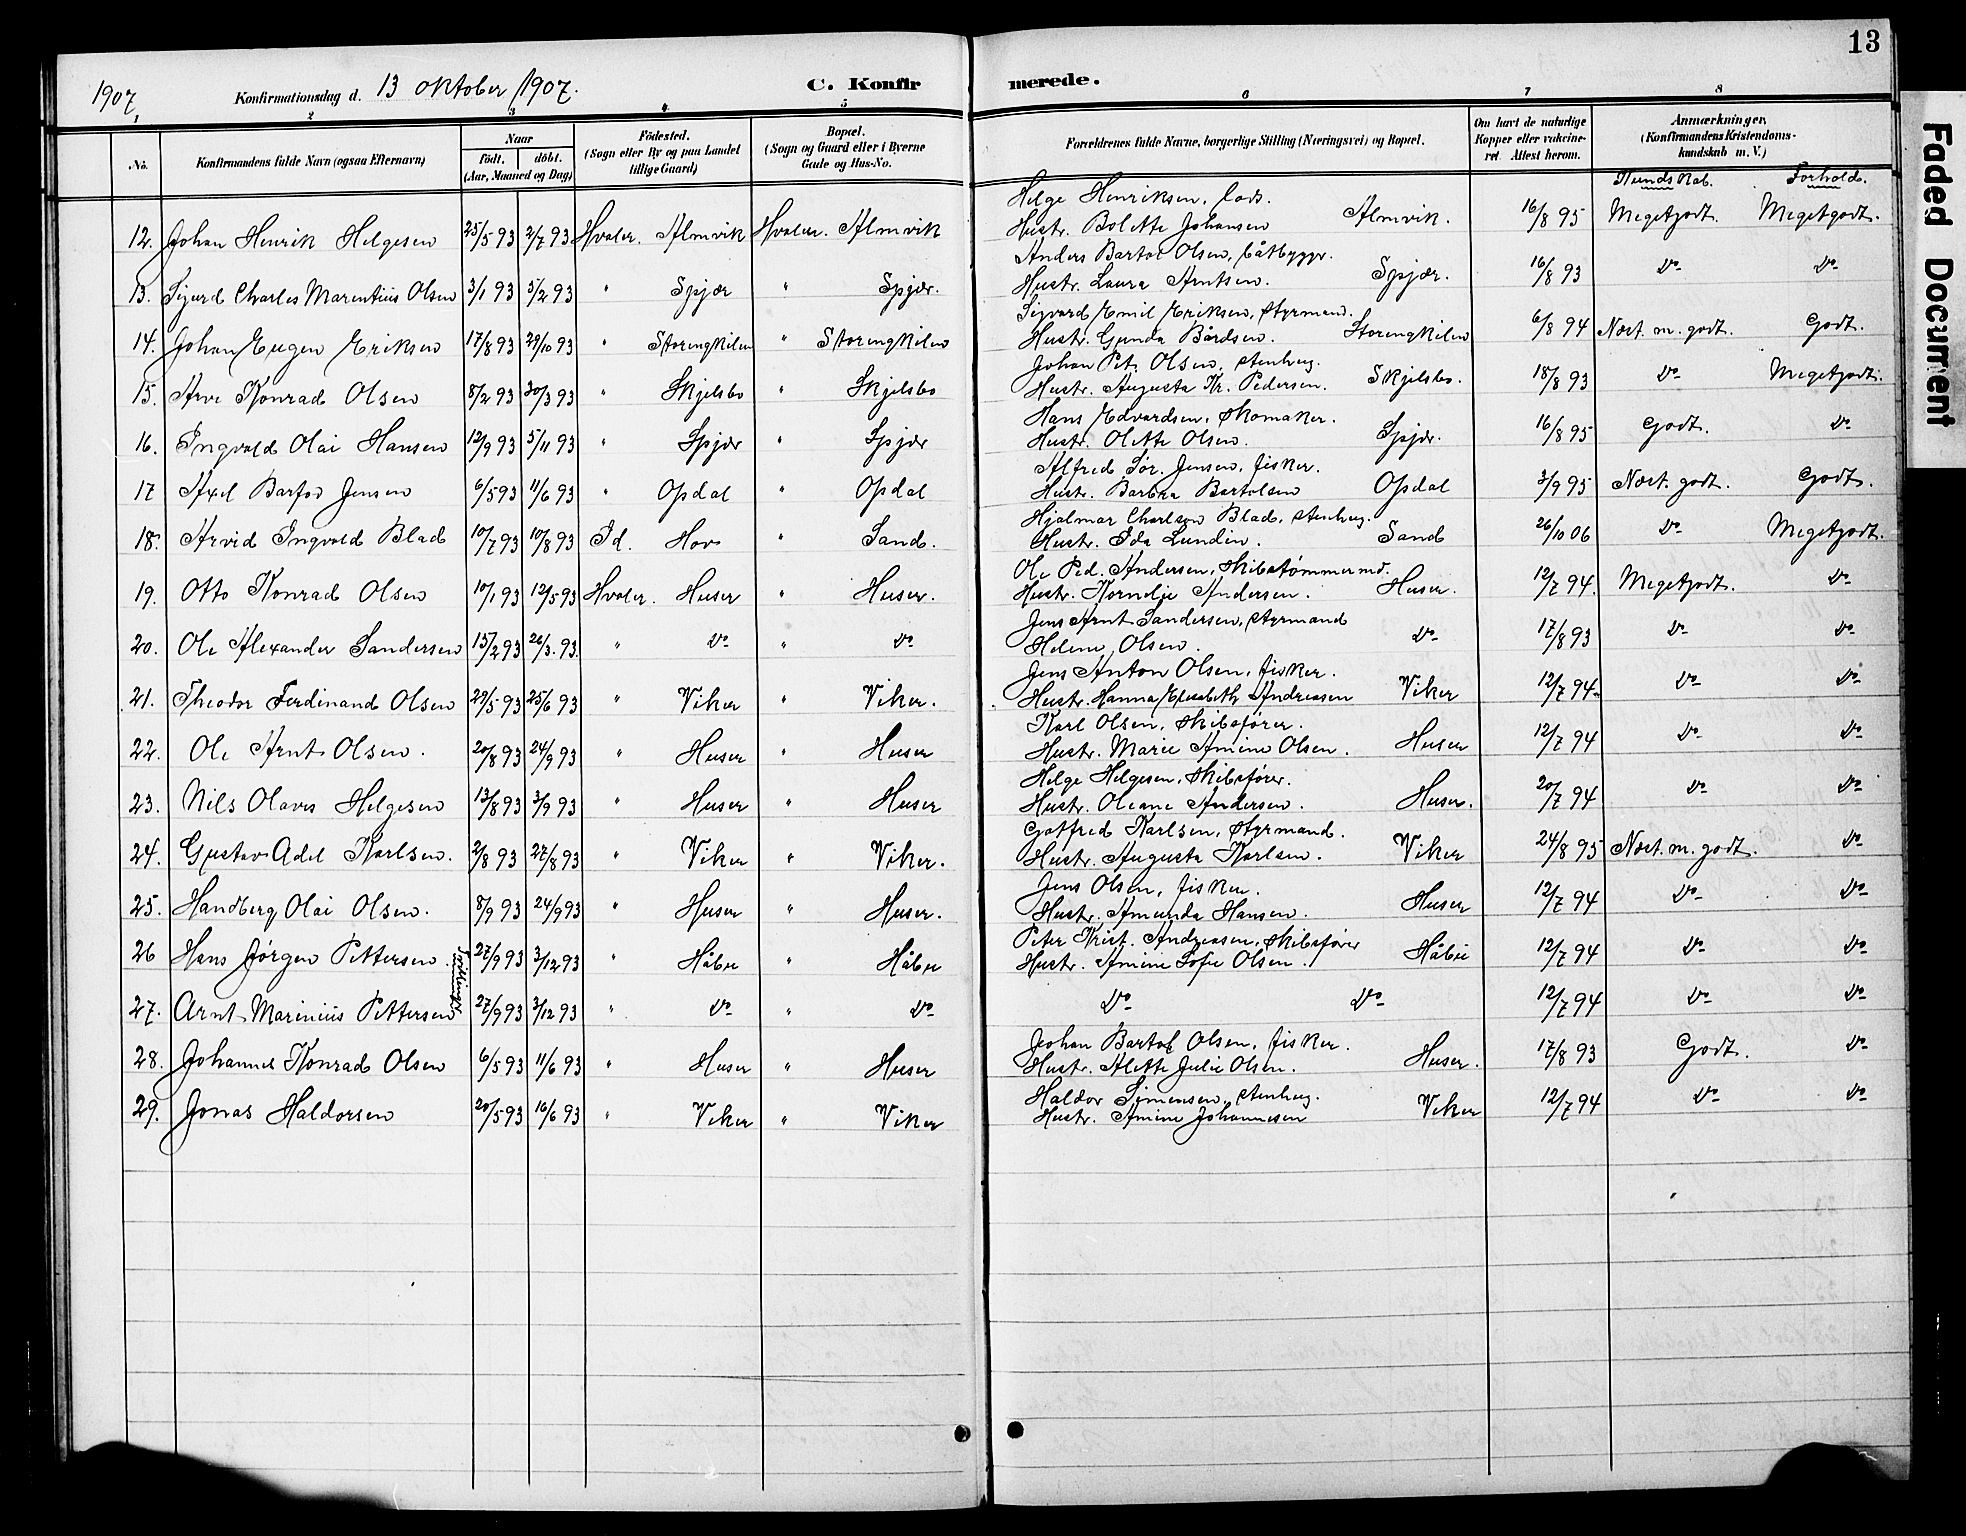 13
1907
Konfirmationsdag d. 13 oktober 1907.
C. Konfirmerede.
1 2 3 4 5 6 7 8
No.
Konfirmandens fulde Navn (ogsaa Efternavn)
Naar
født. døbt.
(Aar, Maaned og Dag)
Fødested.
(Sogn eller By og paa Landet
tillige Gaard)
Bopæl.
(Sogn og Gaard eller i Byerne
Gade og Hus-No.
Forældrenes fulde Navne, borgerlige Stilling (Næringsvei) og Bopæl.
Om havt de naturlige
Kopper eller vakcine-
ret Attest herom.
Anmærkninger.
(Konfirmandens Kristendoms-
kundskab m. V.)
Kundskab. Forhold.
Helge Henriksen, lods.
12. Johan Henrik Helgesen 25/5 93 2/7 93 Hvaler. Almvik Hvaler. Almvik Hustr. Bolette Johansen Almvik. 16/8 95 Megetgodt. Megetgodt.
Anders Bartol Olsen, båtbyggr.
13. Sigurd Charles Marentius Olsen 3/1 93 5/2 93 " Spjær " Spjær. Hustr. Laura Arntsen. Spjær. 16/8 93 Do Do
Sigvard Emil Eriksen, Styrmand.
14. Johan Eugen Eriksen 17/8 93 29/10 93 " Storengkilen " Storengkilen Hustr. Gunda Bårdsen. Storengkilen 6/8 94 Næst. m. godt. Godt.
Johan Pet. Olsen, stenhug.
15. Arve Konrad Olsen 8/2 93 30/3 93 " Skjelsbo " Skjelsbo Hustr. Augusta Kr. Pedersen. Skjelsbo. 18/8 93 Do Megetgodt.
Hans Edvardsen, Skomaker.
16. Ingvald Olai Hansen 12/9 93 5/11 93 " Spjær " Spjær Hustr. Olette Olsen. Spjær. 16/8 95 Godt. Do
Alfred Sør. Jensen, fisker.
17 Axel Bartod Jensen 6/5 93 11/6 93 " Opdal " Opdal Hustr. Barbra Bartolsen Opdal 3/9 95 Næst. godt. Godt.
Hjalmar Charlson Blad, stenhug.
18. Arvid Ingvald Blad 10/7 93 10/8 93 Id. Hov " Sand. Hustr. Ida Lundin. Sand 26/10 06 Do Megetgodt.
Ole Ped. Andersen, Skibstømmermd.
19. Otto Konrad Olsen 10/1 93 12/5 93 Hvaler. Huser " Huser. Hustr. Kornelje Andersen. Huser. 12/7 94. Megetgodt. Do
Jens Arnt Sandersen, styrmand
20. Ole Alexander Sandersen 15/2 93 26/3. 93. " Do " Do Helene Olsen. Do 17/8 93 Do Do
Jens Anton Olsen, fisker.
21. Theodor Ferdinand Olsen 29/5 93 25/6 93 " Viker " Viker. Hustr. Hanna Elisabeth Andreasen Viker 12/7 94 Do Do
Karl Olsen, Skibsfører.
22. Ole Arnt Olsen. 20/8 93 24/9 93 " Huser " Huser Hustr. Marie Amine Olsen. Huser 12/7 94 Do Do
Helge Helgesen, Skibsfører.
23. Nils Olaves Helgesen 13/8 93 3/9 93 " Huser " Huser Hustr. Oleane Andersen. Huser. 20/7 94 Do Do
Gotfred Karlsen, Styrmand.
24. Gustav Adel Karlsen. 2/8 93 27/8 93 " Viker " Viker. Hustr. Augusta Karlsen. Viker 24/8 95 Næst. m. godt. Do
Jens Olsen, fisker.
25. Handberg Olai Olsen. 8/9 93 24/9 93 " Huser " Huser. Hustr. Amunda Hansen. Huser 12/7 94 Do Do
Peter Krist. Andreasen, Skibsfører
26 Hans Jørgen Pettersen. 27/9 93 3/12 93 " Håbu " Håbu Hustr. Amine Sofie Olsen. Håbu 12/7 94 Do Do
27. Arnt Marinius Pettersen 27/9 93 3/12 93 " Do " Do Do Do 12/7 94 Do Do
Johan Bartol Olsen, fisker.
28. Johannes Konrad Olsen 6/5 93 11/6 93 " Huser " Huser Hustr. Alette Julie Olsen. Huser. 17/8 93 Godt. Do
Haldor Simensen, stenhug.
29. Jonas Haldorsen 20/5 93 16/6 93 " Viker " Viker Hustr. Amine Johannesen Viker 12/7 94 Do Do
Faded Document